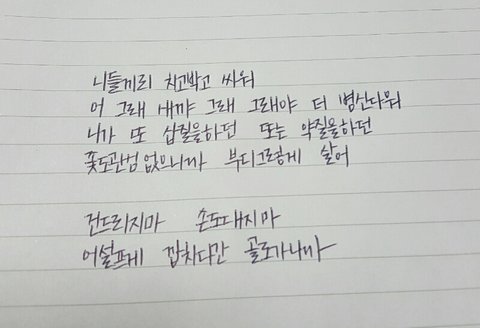 니들끼리 치고박고 싸워
어 그래 새끼야 그래 그래야 더 병신다워
니가 또 삽질을하던 또는 약질을하던
좆도관넘없으니까 부디그렇게 살어
건드리지마 손도대지마
어설프게 깝치다간 골로가니까